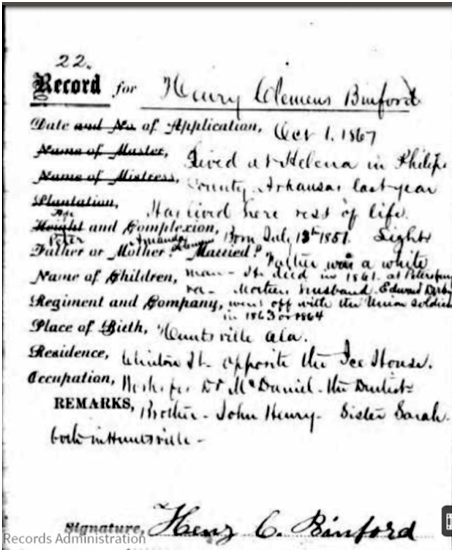 22.
Record for Henry Clemens Binford
Date and No. of Application, Oct 1. 1867
Name of Master, Lived at Helena in Philips
Name of Mistress, County, Arkansas last year
Plantation, Has lived here rest of life.
Age
Height and Complexion, Born July 13th 1851. Light
Peter Amanda
Father or Mother Married? Father was a white
Name of Children, man - He died in 1861. at Petersburg
va - Mothers husband Edward
Regiment and Company, went off with the Union Soldiers
in 1863 or 1864
Place of Birth, Huntsville Ala.
Residence, Clinton St. opposite the Ice House.
Occupation, Works for Dr McDaniel - the Dentist
REMARKS, Brother - John Henry - Sister Sarah.
both in Huntsville -
Signature, Henry C. Binford
Records Administration